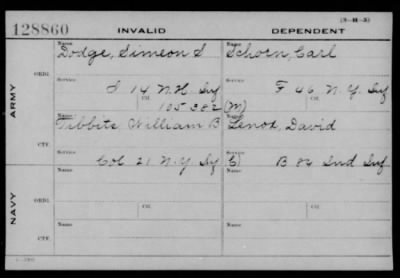 (3-H-3)
128860 INVALID DEPENDENT
Name Name
Dodge, Simeon S Schorn, Carl
ORIG.
Service Service
I 14 N.H. Inf F 46 N.Y. Inf
Ctf. Ctf.
105382 (M)
ARMY
Name Name
Tibbits, William B Lenox, David
CTF.
Service Service
Col 21 N.Y. Inf C) B 82 Ind Inf
Name Name
ORIG.
Ctf. Ctf.
NAVY
Name Name
CTF.